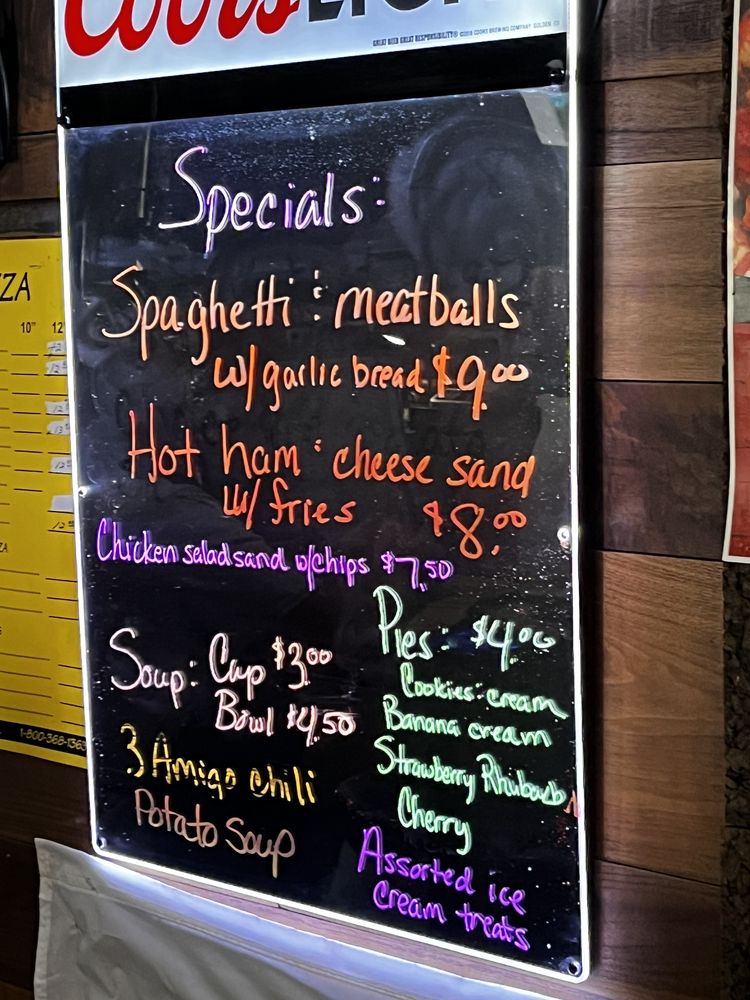 Coors LIGHT
GREAT BEER GREAT RESPONSIBILITY® ©2018 COORS BREWING COMPANY, GOLDEN, CO
Specials:
Spaghetti & meatballs
w/ garlic bread $9.00
Hot ham & cheese sand
w/ fries $8.00
Chicken salad sand w/chips $7.50
Soup: Cup $3.00
Bowl $4.50
3 Amigo chili
Potato Soup
Pies: $4.00
Cookies & cream
Banana cream
Strawberry Rhubarb
Cherry
Assorted ice
cream treats
ZZA
10" 12
12
12
12
13
12
12
ZA
1-800-368-1363